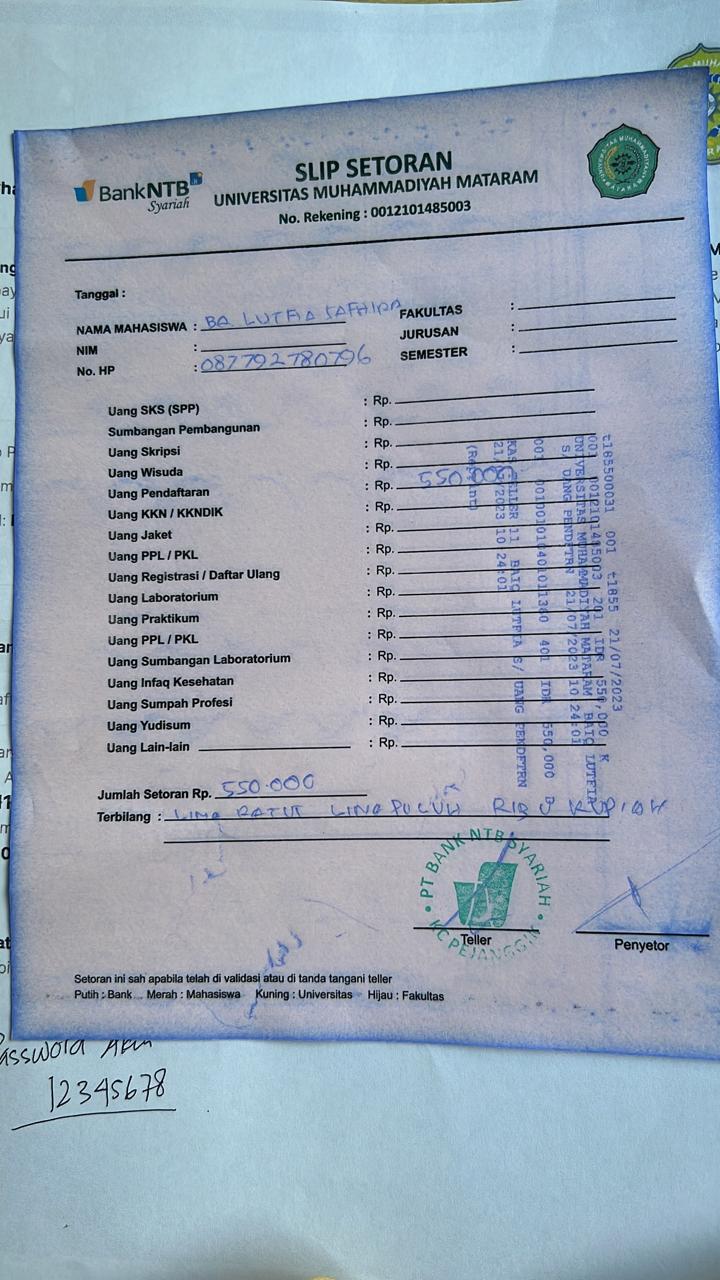 BankNTB
Syariah
SLIP SETORAN
UNIVERSITAS MUHAMMADIYAH MATARAM
No. Rekening : 0012101485003
Tanggal :
NAMA MAHASISWA : BQ LUTFIA SAFHIRA
NIM :
No. HP : 087792780796
FAKULTAS :
JURUSAN :
SEMESTER :
Uang SKS (SPP) : Rp.
Sumbangan Pembangunan : Rp.
Uang Skripsi : Rp.
Uang Wisuda : Rp.
Uang Pendaftaran : Rp. 550.000
Uang KKN / KKNDIK : Rp.
Uang Jaket : Rp.
Uang PPL / PKL : Rp.
Uang Registrasi / Daftar Ulang : Rp.
Uang Laboratorium : Rp.
Uang Praktikum : Rp.
Uang PPL / PKL : Rp.
Uang Sumbangan Laboratorium : Rp.
Uang Infaq Kesehatan : Rp.
Uang Sumpah Profesi : Rp.
Uang Yudisum : Rp.
Uang Lain-lain : Rp.
t185500031 001 t1855 21/07/2023
001 0012101485003 201 IDR 550,000 K
UNIVERSITAS MUHAMMADIYAH MATARAM BAIQ LUTFIA
S/ UANG PENDFTRN 21/07/2023 10 24:01
003 401 IDR 550,000 D
KAS TELLER 11 BAIQ LUTFIA S/ UANG PENDFTRN
21/07/2023 10 24:01
Jumlah Setoran Rp. 550.000
Terbilang : LIMA RATUS LIMA PULUH RIBU RUPIAH
PT BANK NTB SYARIAH
KC PEJANGGIK
Teller
Penyetor
Setoran ini sah apabila telah di validasi atau di tanda tangani teller
Putih : Bank Merah : Mahasiswa Kuning : Universitas Hijau : Fakultas
12345678